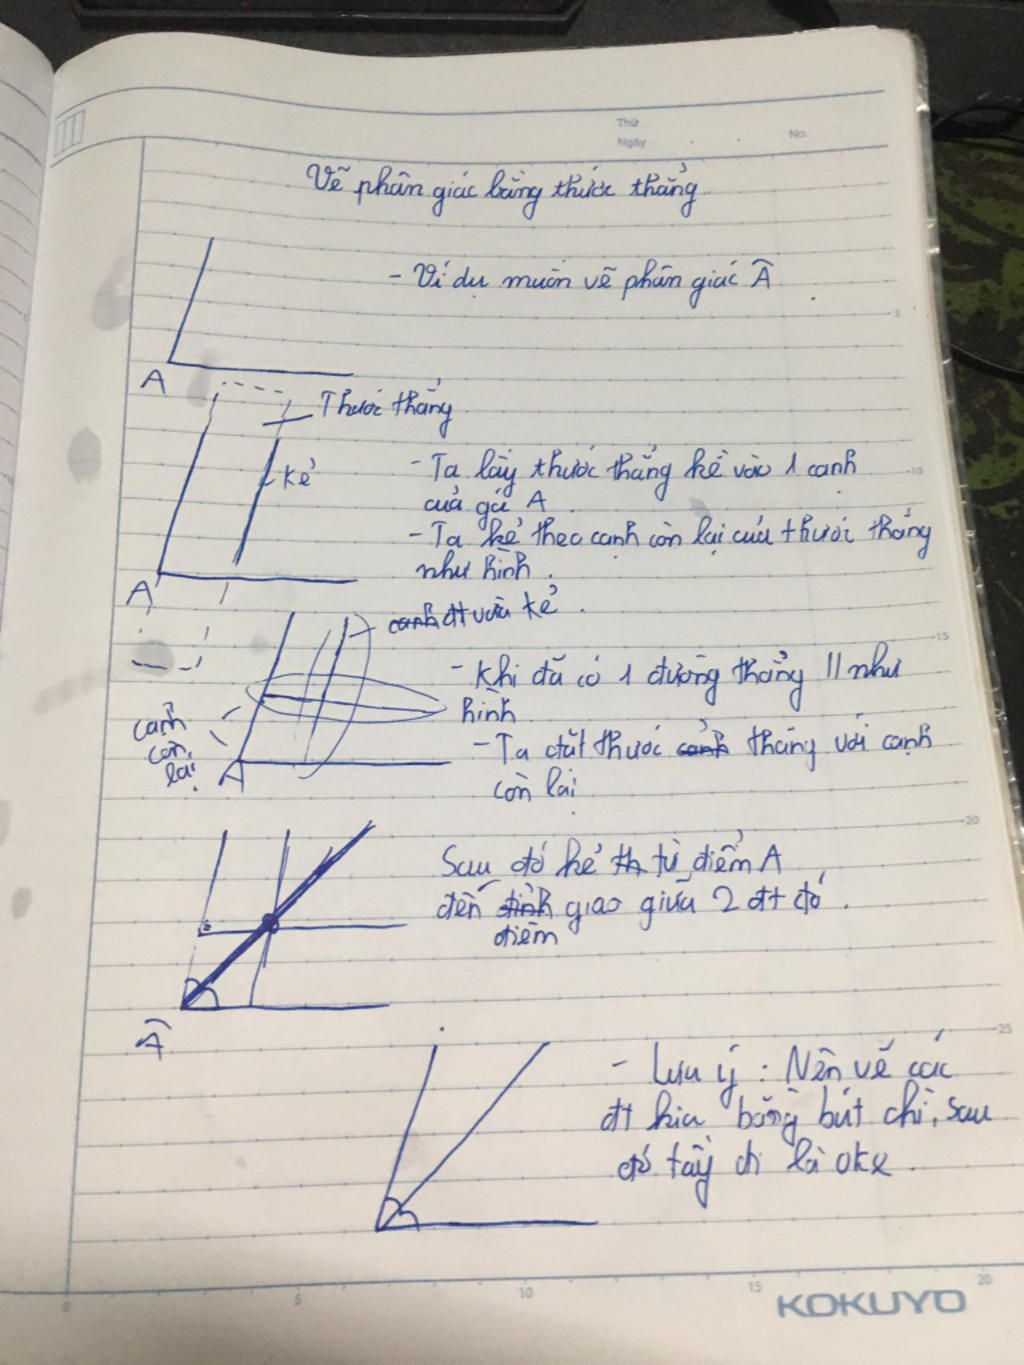 Thứ
Ngày . . No.
Vẽ phân giác bằng thước thẳng
- Ví dụ muốn vẽ phân giác Â
A
Thước thẳng
kẻ
- Ta lấy thước thẳng kề vào 1 cạnh
của góc A
- Ta kẻ theo cạnh còn lại của thước thẳng
như hình.
A
cạnh đt vừa kẻ.
- Khi đã có 1 đường thẳng // như
hình
- Ta đặt thước cạnh thẳng với cạnh
còn lại
cạnh
còn
lại
A
Sau đó kẻ th từ điểm A
đến đỉnh giao giữa 2 đt đó.
điểm
Â
- Lưu ý : Nên vẽ các
đt kia bằng bút chì, sau
đó tẩy đi là oke
5
10
15
20
25
0
5
10
15
20
KOKUYO